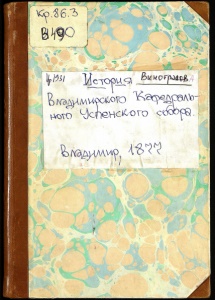 Кр.86.3
В490
История Виноградов
Владимирского Кафедраль-
ного Успенского собора.
Владимир, 1877